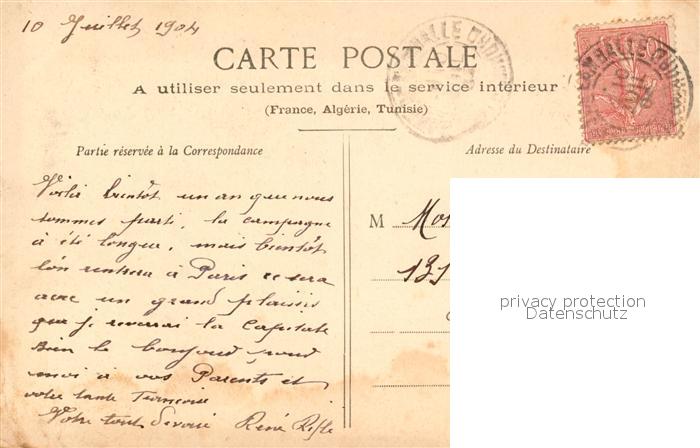 10 Juillet 1904
CARTE POSTALE
A utiliser seulement dans le service intérieur
(France, Algérie, Tunisie)
Partie réservée à la Correspondance
Adresse du Destinataire
Voilà bientôt un an que nous
sommes parti, la campagne
à été longue, mais bientôt
l'on rentrera à Paris ce sera
avec un grand plaisir
que je reverrai la Capitale
Bien le bonjour pour
moi à vos Parents et
votre tante Francoise
Votre tout dévoué René
M
131
privacy protection
Datenschutz